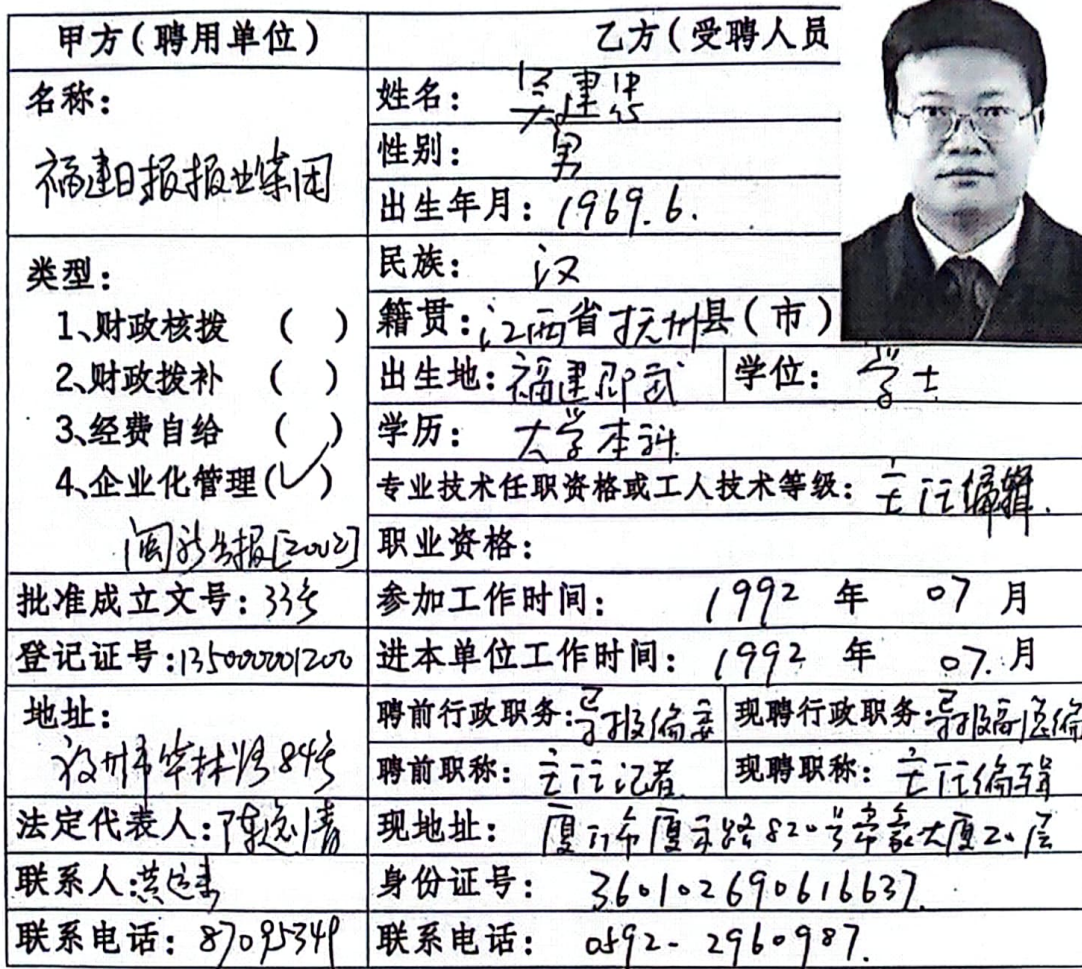 甲方（聘用单位）
乙方（受聘人员
名称：
福建日报报业集团
姓名：吴建华
性别：男
出生年月：1969.6.
类型：
1、财政核拨 （ ）
2、财政拨补 （ ）
3、经费自给 （ ）
4、企业化管理（✓）
闽新出报[2002]
民族：汉
籍贯：江西省抚州县（市）
出生地：福建邵武
学位：学士
学历：大学本科
专业技术任职资格或工人技术等级：主任编辑.
职业资格：
批准成立文号：33号
参加工作时间：1992 年 07 月
登记证号：135000001200
进本单位工作时间：1992 年 07. 月
地址：
福州市华林路84号
聘前行政职务：导报编委
现聘行政职务：导报副总编
聘前职称：主任记者
现聘职称：主任编辑
法定代表人：
现地址：厦门市厦禾路820号帝豪大厦20层
联系人：黄
身份证号：360102690616637.
联系电话：87095349
联系电话：0592-2960987.